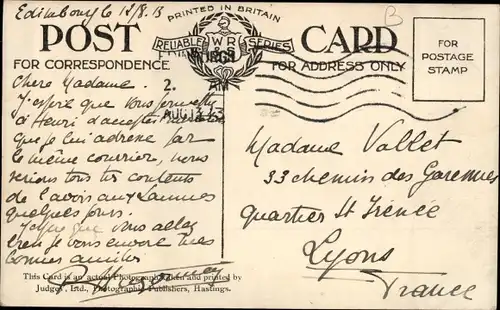 Edimbourg le 12/8.13
PRINTED IN BRITAIN
POST CARD
RELIABLE WR SERIES
FOR CORRESPONDENCE
FOR ADDRESS ONLY
FOR
POSTAGE
STAMP
B
2. AM
AUG 13 13
Chère Madame.
J'espère que vous permettez
à Henri d'accepter
que je lui adresse par
le même courrier, nous
serions tous très contents
de l'avoir aux
quelques jours.
J'espère que vous allez
bien je vous envoie mes
bonnes amitiés
This Card is an actual Photograph taken and printed by
Judges', Ltd., Photographic Publishers, Hastings.
Madame Vallet
33 chemin des Garennes
quartier St Irénée
Lyons
France